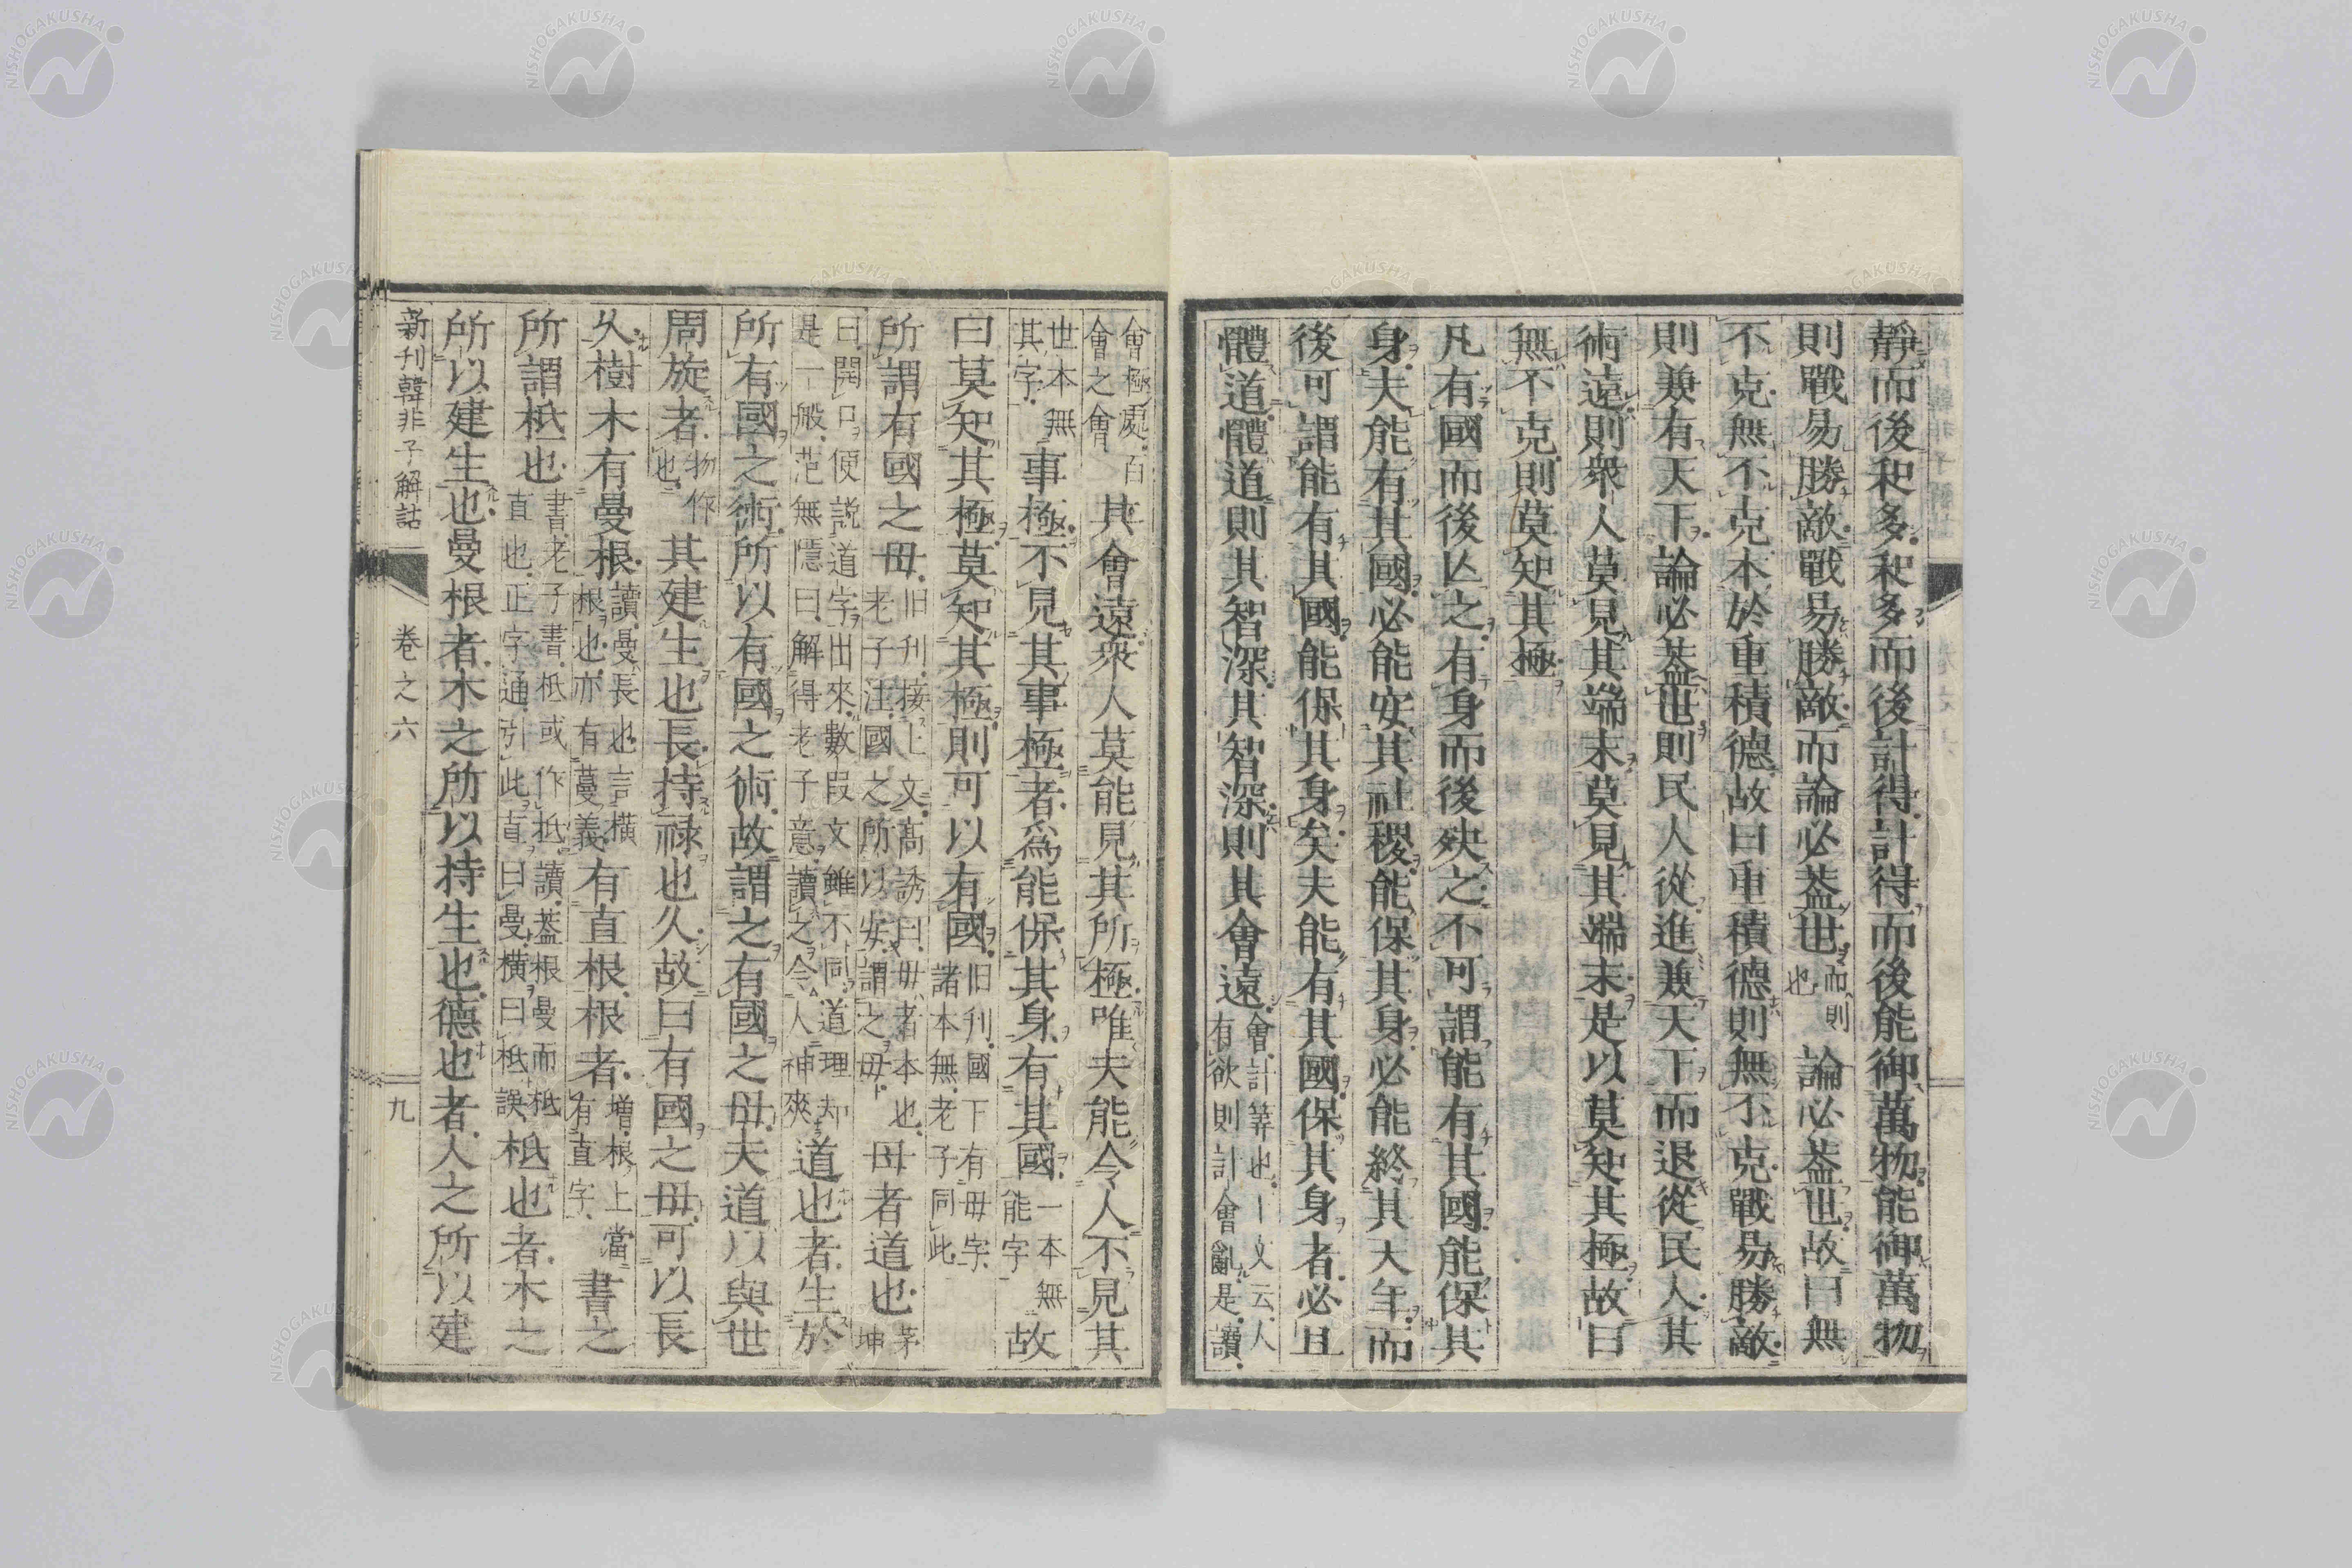 靜而後和多和多而後計得計得而後能御萬物能御萬物
則戰易勝敵戰易勝敵而論必蓋世而則也論必蓋世故曰無
不克無不克本於重積德故曰重積德則無不克戰易勝敵
則兼有天下論必蓋世則民人從進兼天下而退從民人其
術遠則衆人莫見其端末莫見其端末是以莫知其極故曰
無不克則莫知其極
凡有國而後亡之有身而後殃之不可謂能有其國能保其
身夫能有其國必能安其社稷能保其身必能終其天年而
後可謂能有其國能保其身矣夫能有其國保其身者必且
體道體道則其智深其智深則其會遠會計筭也一文云人有欲則計會亂是讀
會極處百會之會其會遠衆人莫能見其所極唯夫能令人不見其
世本無其字事極不見其事極者爲能保其身有其國一本無能字故
曰莫知其極莫知其極則可以有國旧刋國下有母字諸本無老子同此
所謂有國之母旧刋接上文高誘曰母者本也老子注國之所以安謂之母母者道也茅坤
曰開口便説道字出來數段文雖不同道理却是一般范無隱曰解得老子意讀之令人神爽道也者生於
所有國之術所以有國之術故謂之有國之母夫道以與世
周旋者物作也其建生也長持禄也久故曰有國之母可以長
久樹木有曼根讀曼長也言橫根也亦有蔓義有直根根者増根上當有直字書之
所謂柢也書老子書柢或作抵讀蓋根曼而柢直也正字通引此直曰曼橫曰柢誤柢也者木之
所以建生也曼根者木之所以持生也德也者人之所以建
新刋韓非子解詁
卷之六
九
NISHOGAKUSHA